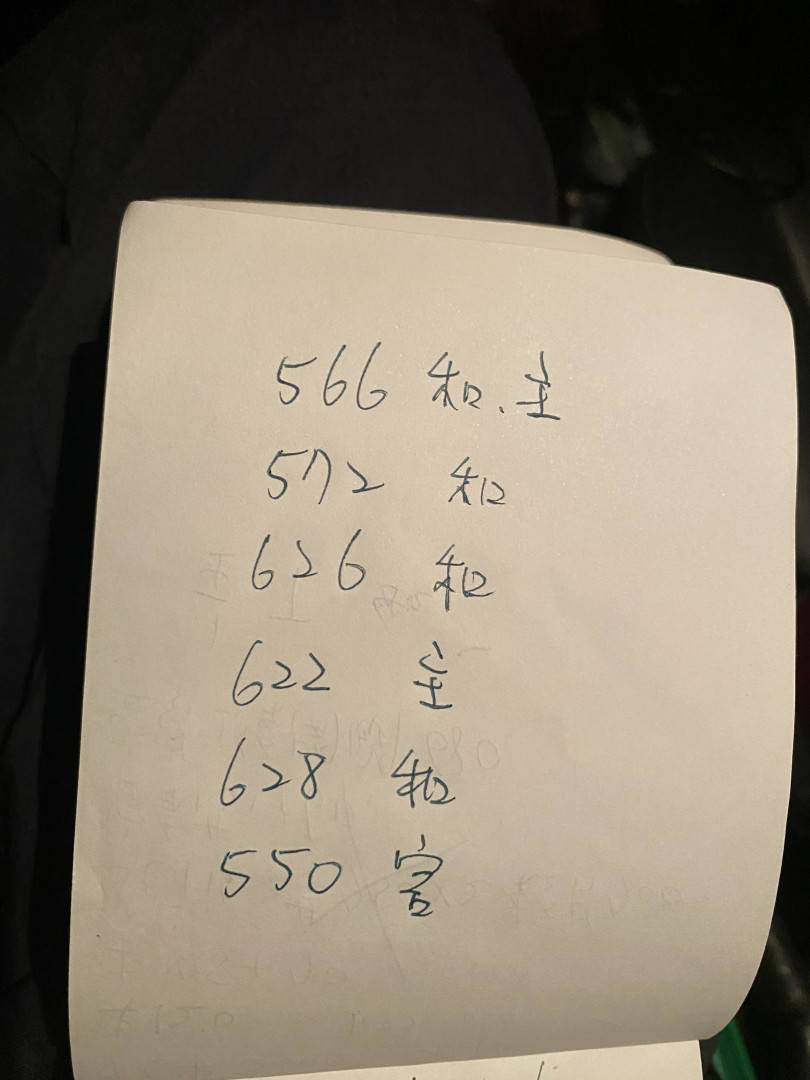 566 和、主
572 和
626 和
622 主
628 和
550 宫